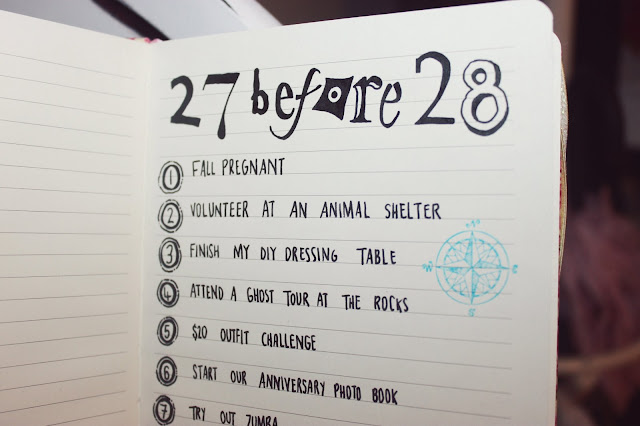 27 before 28
1 FALL PREGNANT
2 VOLUNTEER AT AN ANIMAL SHELTER
3 FINISH MY DIY DRESSING TABLE
4 ATTEND A GHOST TOUR AT THE ROCKS
5 $20 OUTFIT CHALLENGE
6 START OUR ANNIVERSARY PHOTO BOOK
7 TRY OUT ZUMBA
N
W E
S